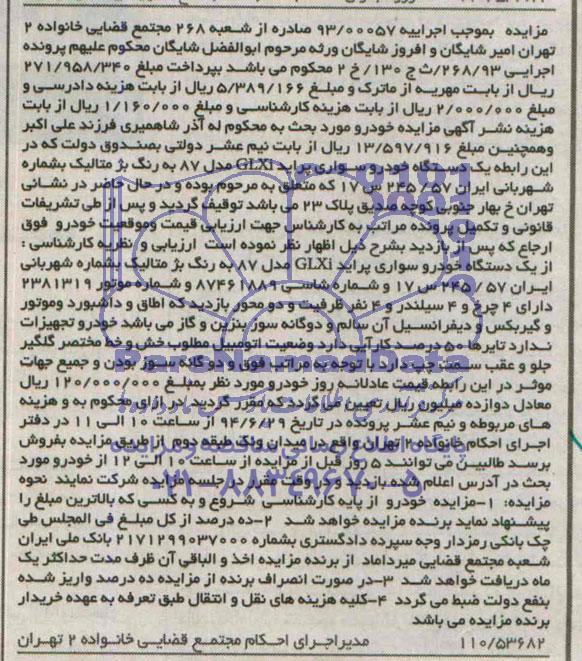 مزایده بموجب اجراییه ۹۳/۰۰۰۵۷ صادره از شعبه ۲۶۸ مجتمع قضایی خانواده ۲
تهران امیر شایگان و افروز شایگان ورثه مرحوم ابوالفضل شایگان محکوم علیهم پرونده
اجرایی ۲۶۸/۹۳/ث ج ۱۳۰/خ ۲ محکوم می باشد بپرداخت مبلغ ۲۷۱/۹۵۸/۳۴۰
ریال از بابت مهریه از ماترک و مبلغ ۵/۳۸۹/۱۶۶ ریال از بابت هزینه دادرسی و
مبلغ ۲/۰۰۰/۰۰۰ ریال از بابت هزینه کارشناسی و مبلغ ۱/۱۶۰/۰۰۰ ریال از بابت
هزینه نشر آگهی مزایده خودرو مورد بحث به محکوم له آذر شاهمیری فرزند علی اکبر
وهمچنین مبلغ ۱۳/۵۹۷/۹۱۶ ریال از بابت نیم عشر دولتی بصندوق دولت که در
این رابطه یک دستگاه خودرو سواری پراید GLXi مدل ۸۷ به رنگ بژ متالیک بشماره
شهربانی ایران ۵۷/ ۲۴۵ س ۱۷ که متعلق به مرحوم بوده و در حال حاضر در نشانی
تهران خ بهار جنوبی کوچه صدیق پلاک ۲۳ می باشد توقیف گردید و پس از طی تشریفات
قانونی و تکمیل پرونده مراتب به کارشناس جهت ارزیابی قیمت وموقعیت خودرو فوق
ارجاع که پس از بازدید بشرح ذیل اظهار نظر نموده است ارزیابی و نظریه کارشناسی :
از یک دستگاه خودرو سواری پراید GLXi مدل ۸۷ به رنگ بژ متالیک بشماره شهربانی
ایران ۵۷/ ۲۴۵ س ۱۷ و شماره شاسی ۸۷۴۶۱۸۸۹ و شماره موتور ۲۳۸۱۳۱۹
دارای ۴ چرخ و ۴ سیلندر و ۴ نفر ظرفیت و دو محور بازدید که اطاق و داشبورد وموتور
و گیربکس و دیفرانسیل آن سالم و دوگانه سوز بنزین و گاز می باشد خودرو تجهیزات
ندارد تایرها ۵۰ درصد کارآیی دارد وضعیت اتومبیل مطلوب خش و خط مختصر گلگیر
جلو و عقب سمت چپ دارد با توجه به مراتب فوق و دو گانه سوز بودن و جمیع جهات
موثر در این رابطه قیمت عادلانه روز خودرو مورد نظر بمبلغ ۱۲۰/۰۰۰/۰۰۰ ریال
معادل دوازده میلیون ریال تعیین می گردد که مقرر گردید در ازای محکوم به و هزینه
های مربوطه و نیم عشر پرونده در تاریخ ۹۴/۶/۲۹ از ساعت ۱۰ الی ۱۱ در دفتر
اجرای احکام خانواده ۲ تهران واقع در میدان ونک طبقه دوم از طریق مزایده بفروش
برسد طالبین می توانند ۵ روز قبل از مزایده از ساعت ۱۰ الی ۱۲ از خودرو مورد
بحث در آدرس اعلام شده بازدید و در وقت مقرر در جلسه مزایده شرکت نمایند نحوه
مزایده: ۱-مزایده خودرو از پایه کارشناسی شروع و به کسی که بالاترین مبلغ را
پیشنهاد نماید برنده مزایده خواهد شد ۲-ده درصد از کل مبلغ فی المجلس طی
چک بانکی رمزدار وجه سپرده دادگستری بشماره ۲۱۷۱۲۹۹۰۳۷۰۰۰ بانک ملی ایران
شعبه مجتمع قضایی میرداماد از برنده مزایده اخذ و الباقی آن ظرف مدت حداکثر یک
ماه دریافت خواهد شد ۳-در صورت انصراف برنده از مزایده ده درصد واریز شده
بنفع دولت ضبط می گردد ۴-کلیه هزینه های نقل و انتقال طبق تعرفه به عهده خریدار
برنده مزایده می باشد
۱۱۰/۵۳۶۸۲ مدیراجرای احکام مجتمع قضایی خانواده ۲ تهران
ParsNamadData
پایگاه اطلاع رسانی مناقصه و مزایده
۰۲۱-۸۸۳۴۹۶۷۰-۵